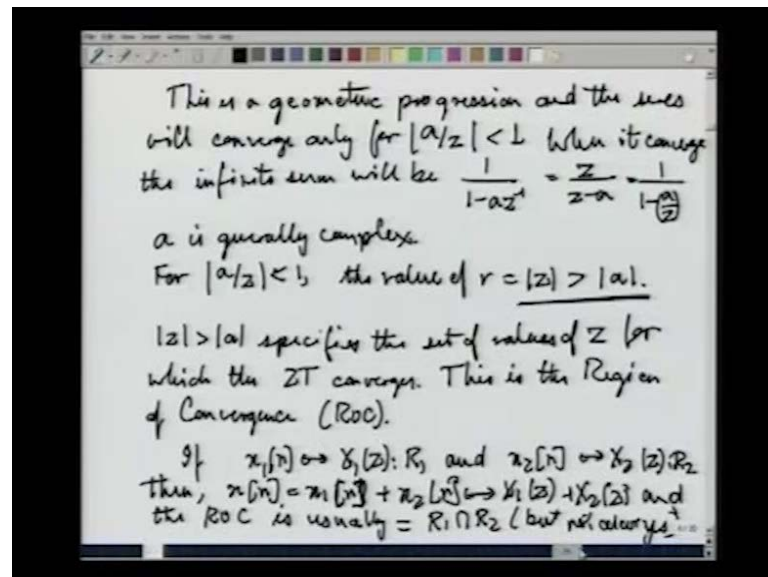 This is a geometric progression and the series
will converge only for |a/z| < 1 When it converge
the infinite sum will be 1/(1-az⁻¹) = z/(z-a) = 1/(1-(a/z))
a is generally complex.
For |a/z| < 1, the value of r = |z| > |a|.
|z| > |a| specifies the set of values of z for
which the ZT converges. This is the Region
of Convergence (ROC).
If x₁[n] ↔ X₁(z): R₁ and x₂[n] ↔ X₂(z): R₂
Then, x[n] = x₁[n] + x₂[n] ↔ X₁(z) + X₂(z) and
the ROC is usually = R₁ ∩ R₂ (but not always